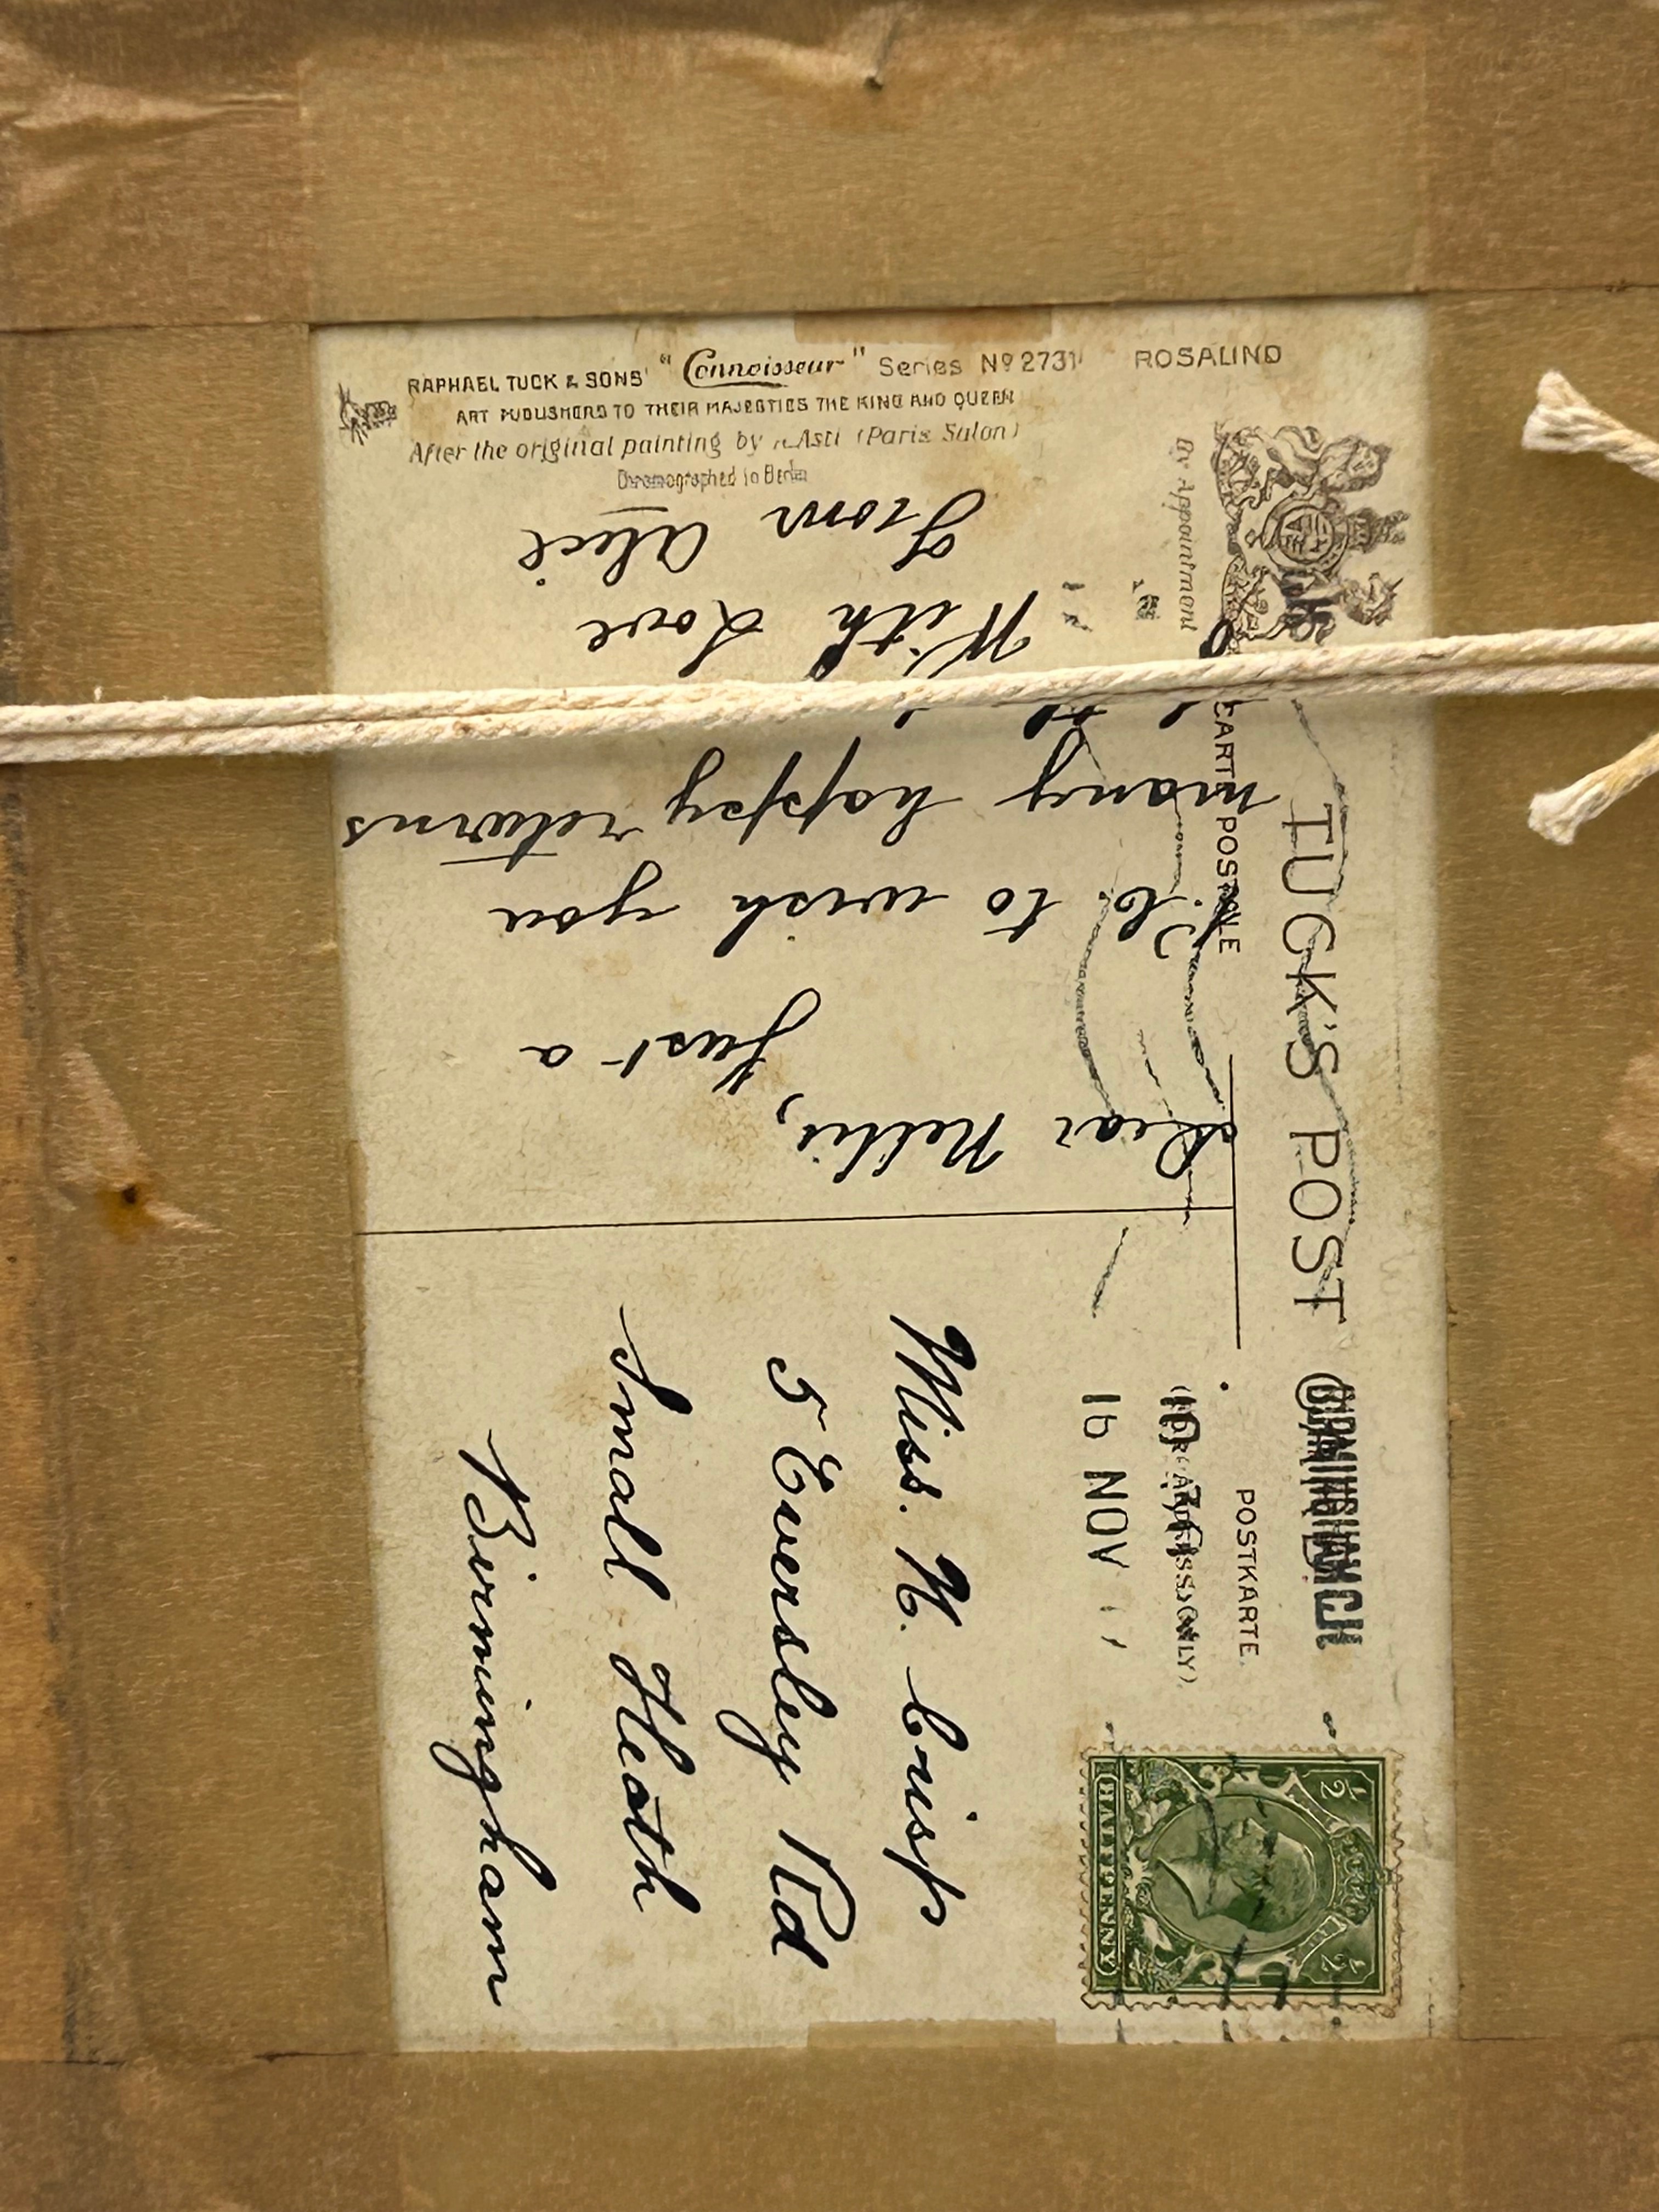 RAPHAEL TUCK & SONS' "Connoisseur" Series Nº 2731 ROSALIND
ART PUBLISHERS TO THEIR MAJESTIES THE KING AND QUEEN
After the original painting by A. Asti (Paris Salon)
Chromographed in Berlin
By Appointment
TUCK'S POST CARD
CARTE POSTALE
POSTKARTE.
(FOR ADDRESS ONLY)
BIRMINGHAM
16 NOV
½ ½
HALFPENNY
Dear Nellie,
Just a
P.C. to wish you
many happy returns
With Love
From Alice
Miss. N. Crisp
5 Eversley Rd
Small Heath
Birmingham